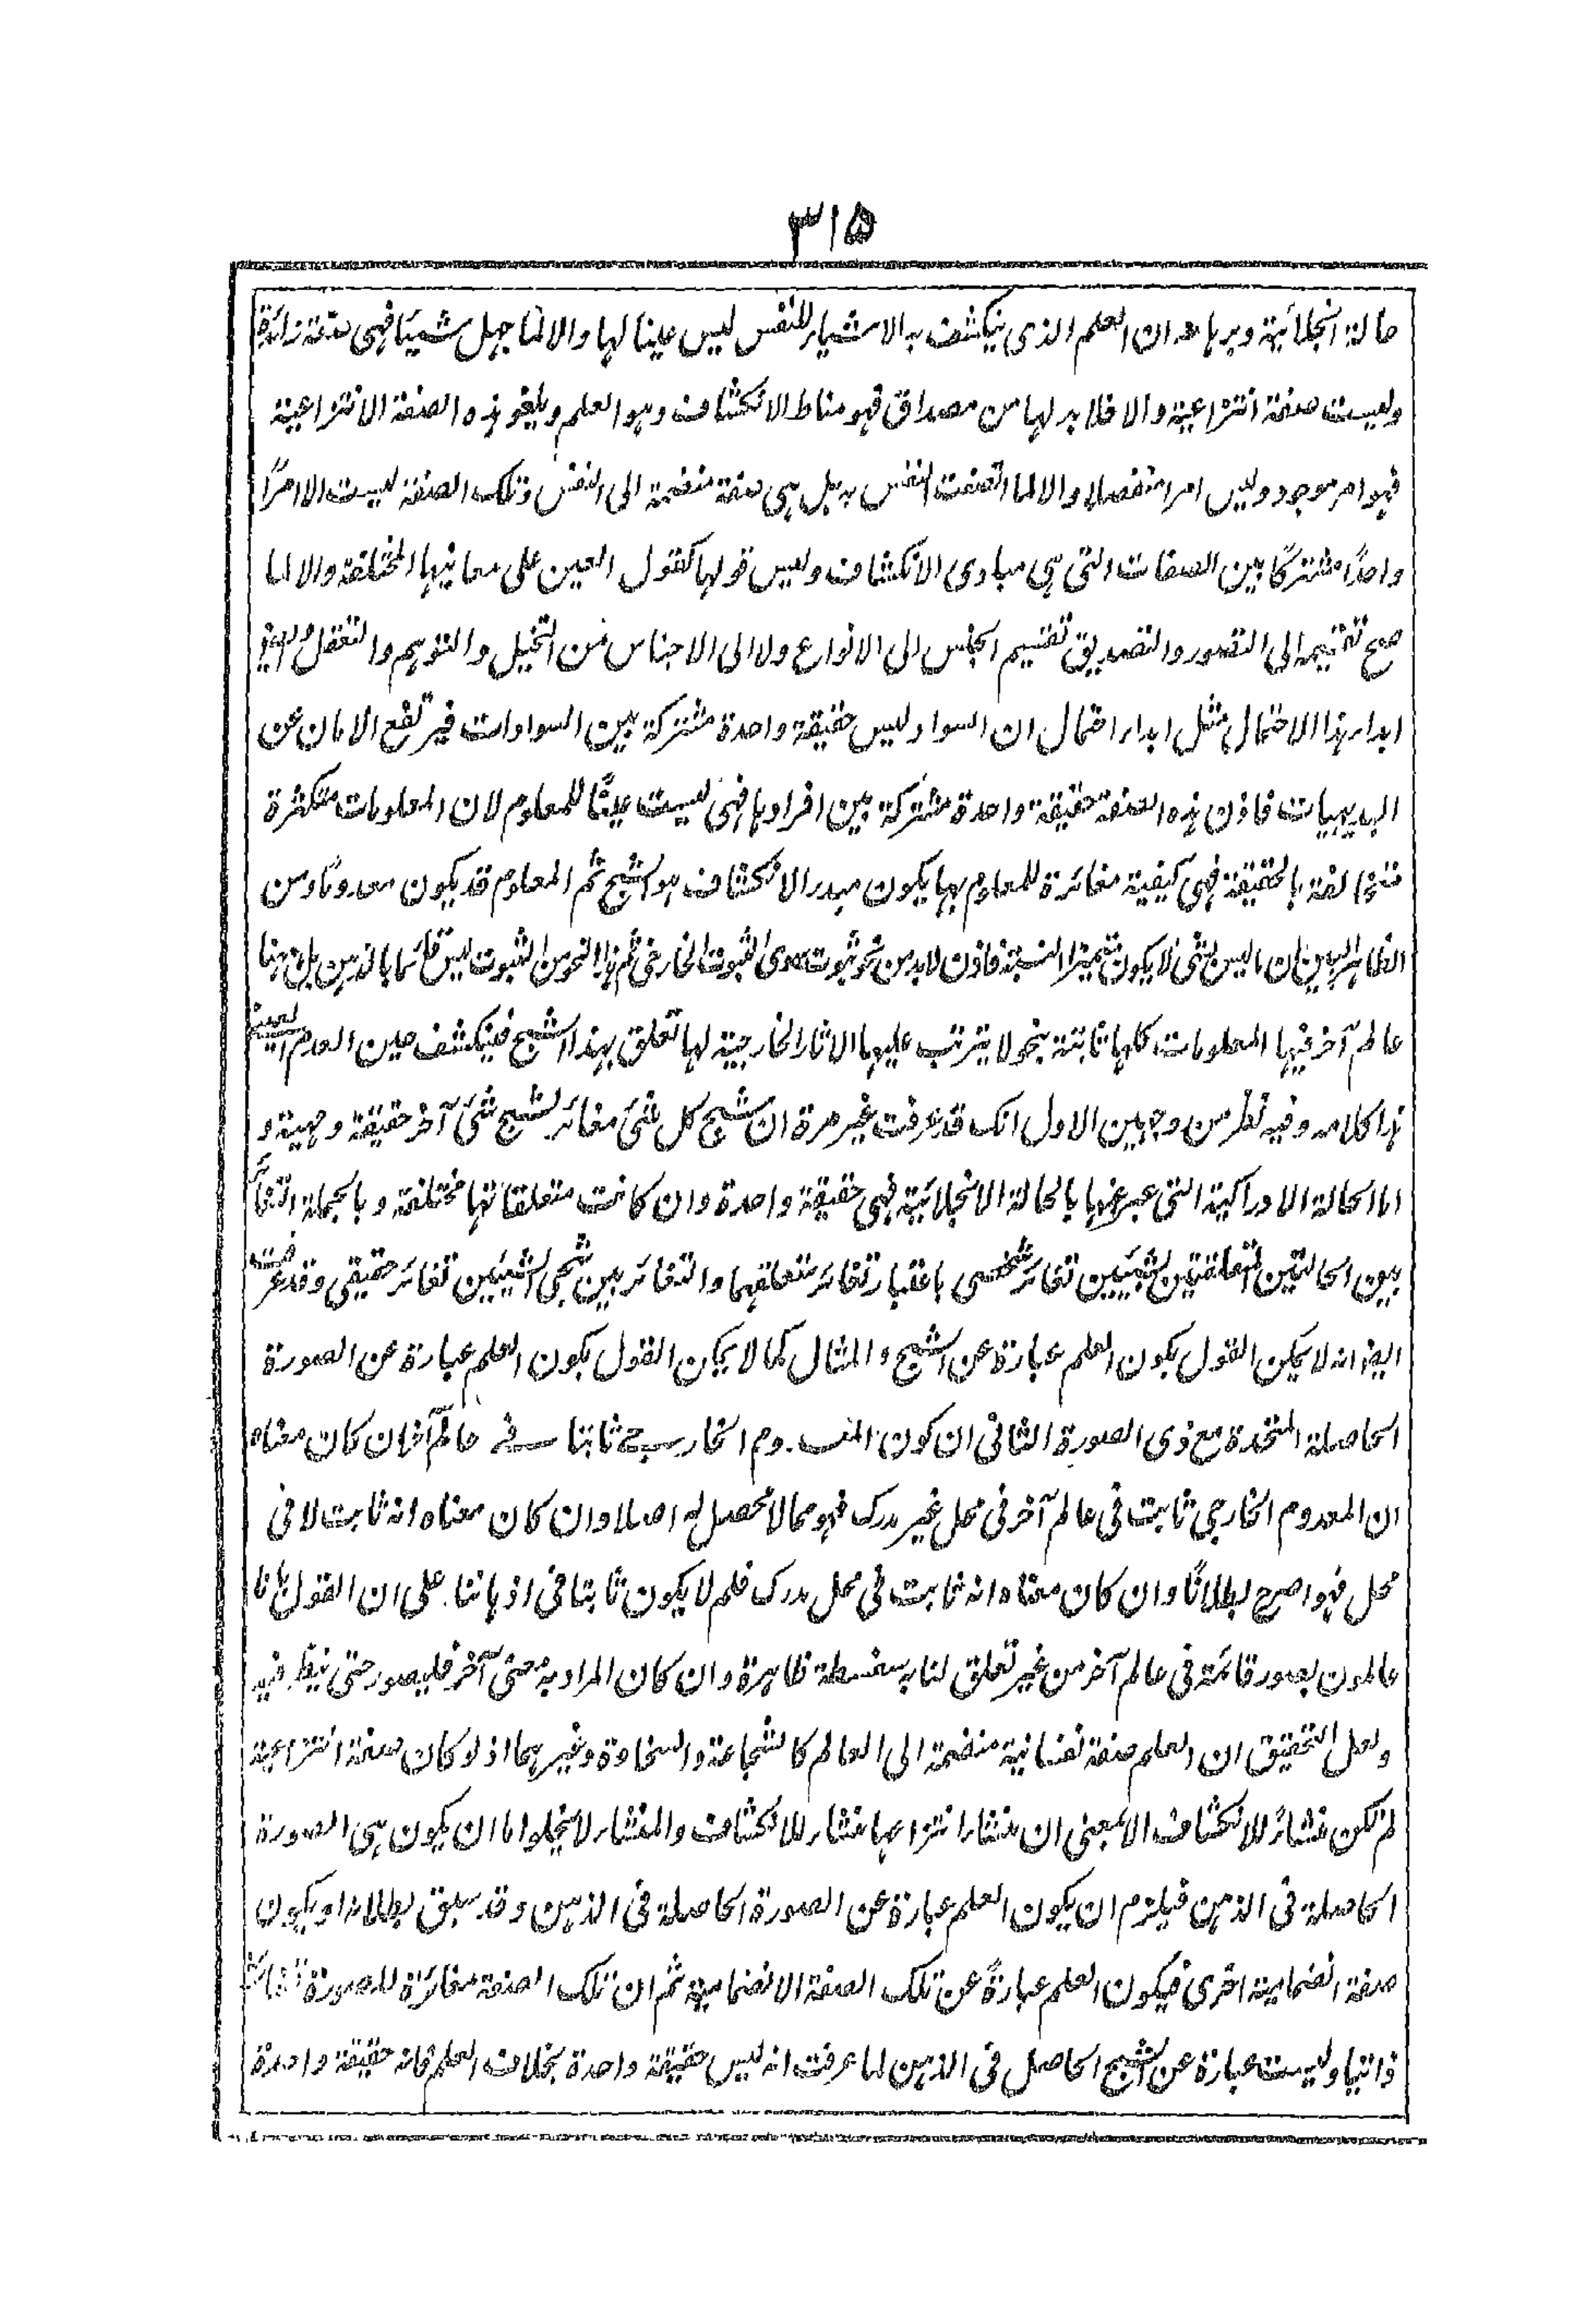 ٣١٥
حالة انجلائية وبرهانه ان العلم الذى ينكشف به الاشياء للنفس ليس عينا لها والا لما جهل شيئا فهى صفة زائدة
وليست صفة انتزاعية والا فلابد لها من مصداق فهو مناط الانكشاف وهو العلم ويلغو هذه الصفة الانتزاعية
فهو امر موجود وليس امرا منفصلا والا لما اتصفت النفس به بل هى صفة منضمة الى النفس وتلك الصفة ليست الا امرًا
واحدًا مشتركًا بين الصفات التى هى مبادى الانكشاف وليس قولها كقول العين على معانيها المختلفة والا لما
صح تقسيمه الى التصور والتصديق تقسيم الجنس الى الانواع ولا الى الاجناس من التخيل والتوهم والتعقل
ابداء هذا الاحتمال مثل ابداء احتمال ان السواد ليس حقيقة واحدة مشتركة بين السوادات فيرتفع الامان عن
البديهيات فاذن هذه الصفة حقيقة واحدة مشتركة بين افرادها فهى ليست عينًا للمعلوم لان المعلومات متكثرة
متخالفة بالحقيقة فهى كيفية مغائرة للمعلوم بها يكون مبدء الانكشاف هو الشبح ثم المعلوم قد يكون معدومًا ومن
الظاهر البين ان ما ليس بشئ لا يكون متميزا لنسبة فاذن لابد من نحو ثبوت سوى الثبوت الخارجى ثم هذا النحو من الثبوت ليس قائما بالذهن بل ههنا
عالم آخر فيها المعلومات كلها ثابتة بنحو لا يترتب عليها الاثار الخارجية لها تعلق بهذا الشبح فينكشف حين العدم
هذا كلامه وفيه نظر من وجهين الاول انك قد عرفت غير مرة ان شبح كل شئ مغائر لشبح شئ آخر حقيقة ومهية و
اما الحالة الادراكية التى عبر عنها بالحالة الانجلائية فهى حقيقة واحدة وان كانت متعلقاتها مختلفة وبالجملة التغائر
بين الحالتين المتعلقتين لشيئين تغائر شخصى باعتبار تغائر متعلقهما والتغائر بين شبحى الشيئين تغائر حقيقى وقد عرفت
ايضا انه لا يمكن القول بكون العلم عبارة عن الشبح والمثال كما لا يمكن القول بكون العلم عبارة عن الصورة
الحاصلة المتحدة مع ذى الصورة الثانى ان كون المعدوم الخارجى ثابتا فى عالم آخر ان كان معناه
ان المعدوم الخارجى ثابت فى عالم آخر فى محل غير مدرك فهو مما لا محصل له اصلا وان كان معناه انه ثابت لا فى
محل فهو اصرح بطلانًا وان كان معناه انه ثابت فى محل مدرك فلم لا يكون ثابتا فى اذهاننا على ان القول بانا
عالمون بصور قائمة فى عالم آخر من غير تعلق لنا به سفسطة ظاهرة وان كان المراد به معنى آخر فليصور حتى ينظر فيه
ولعل التحقيق ان العلم صفة نفسانية منضمة الى العالم كالشجاعة والسخاوة وغيرهما اذ لو كان صفة انتزاعية
لم تكن منشاءً للانكشاف الا بمعنى ان منشاء انتزاعها منشاء للانكشاف والمنشاء لا يخلوا ما ان يكون هى الصورة
الحاصلة فى الذهن فيلزم ان يكون العلم عبارة عن الصورة الحاصلة فى الذهن وقد سبق بطلانه او يكون
صفة انضمامية اخرى فيكون العلم عبارةً عن تلك الصفة الانضمامية ثم ان تلك الصفة مغائرة للصورة تغائرا
ذاتيا وليست عبارة عن الشبح الحاصل فى الذهن لما عرفت انه ليس حقيقة واحدة بخلاف العلم فانه حقيقة واحدة